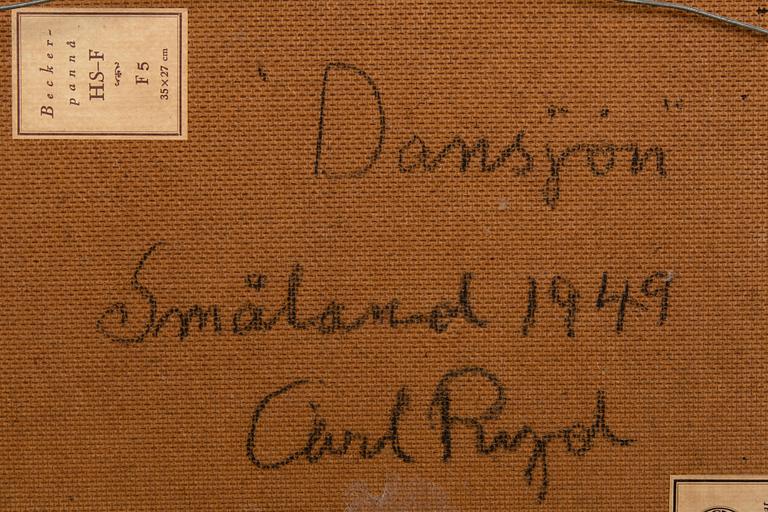 Becker-
panna
HS-F
F 5
35×27 cm
"Dansjön"
Småland 1949
Carl Ryd